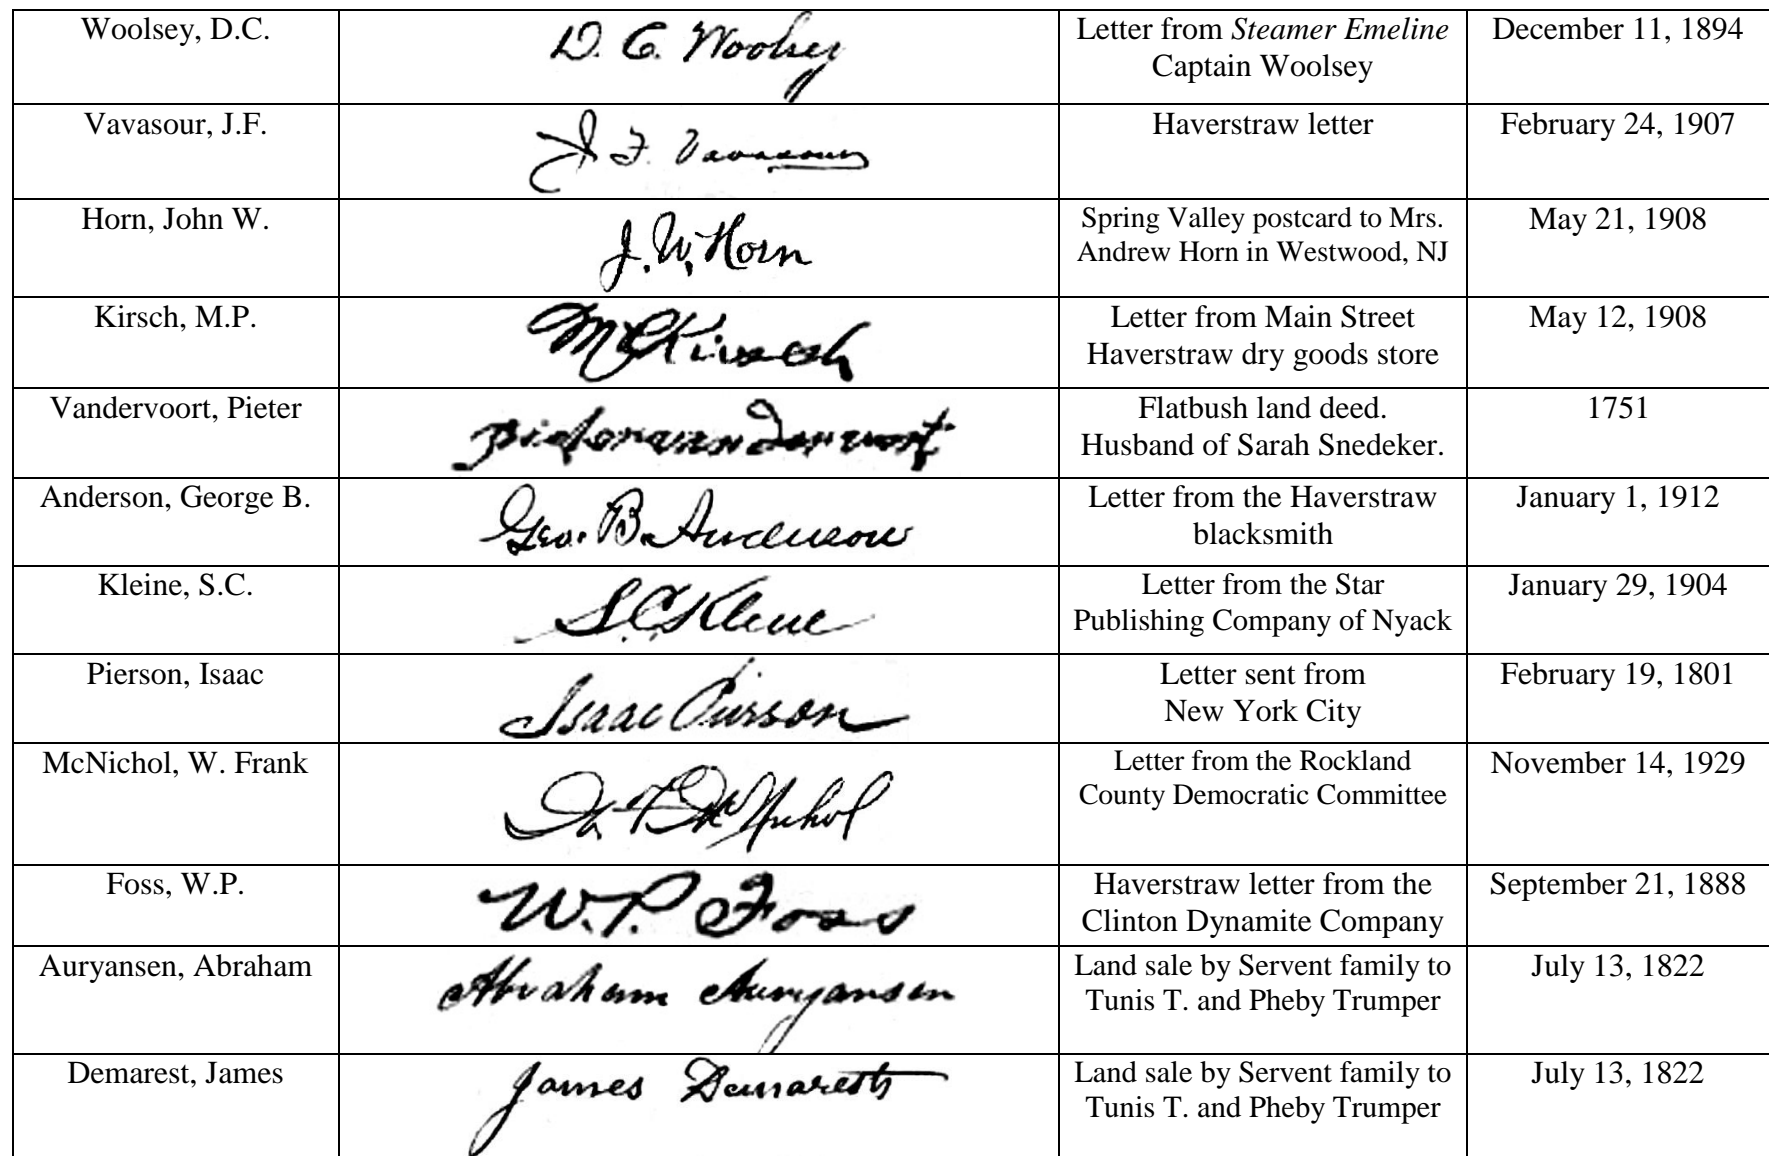 Woolsey, D.C.
D. C. Woolsey
Letter from Steamer Emeline
Captain Woolsey
December 11, 1894
Vavasour, J.F.
J. F. Vavasour
Haverstraw letter
February 24, 1907
Horn, John W.
J. W. Horn
Spring Valley postcard to Mrs.
Andrew Horn in Westwood, NJ
May 21, 1908
Kirsch, M.P.
M P Kirsch
Letter from Main Street
Haverstraw dry goods store
May 12, 1908
Vandervoort, Pieter
Flatbush land deed.
Husband of Sarah Snedeker.
1751
Anderson, George B.
Geo. B. Anderson
Letter from the Haverstraw
blacksmith
January 1, 1912
Kleine, S.C.
S. C. Kleine
Letter from the Star
Publishing Company of Nyack
January 29, 1904
Pierson, Isaac
Isaac Pierson
Letter sent from
New York City
February 19, 1801
McNichol, W. Frank
W. F. McNichol
Letter from the Rockland
County Democratic Committee
November 14, 1929
Foss, W.P.
W. P. Foss
Haverstraw letter from the
Clinton Dynamite Company
September 21, 1888
Auryansen, Abraham
Abraham Auryansen
Land sale by Servent family to
Tunis T. and Pheby Trumper
July 13, 1822
Demarest, James
James Demarest
Land sale by Servent family to
Tunis T. and Pheby Trumper
July 13, 1822